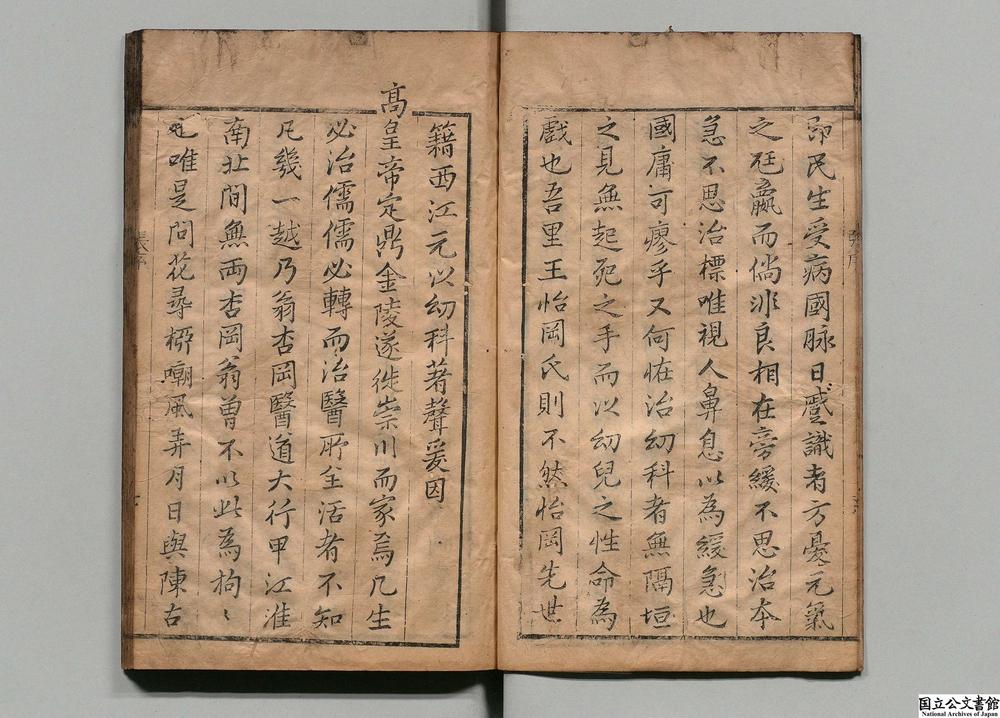 即民生受病國脉日蹙識者方憂元氣
之尫羸而倘非良相在旁緩不思治本
急不思治標唯視人鼻息以為緩急也
國庸可瘳乎又何恠治幼科者無隔垣
之見無起死之手而以幼兒之性命為
戲也吾里王怡岡氏則不然怡岡先世
籍西江元以幼科著聲爰因
高皇帝定鼎金陵遂徙崇川而家焉凡生
必治儒儒必轉而治醫所全活者不知
凡幾一越乃翁杏岡醫道大行甲江淮
南北間無兩杏岡翁曾不以此為拘〻
也唯是問花尋柳嘲風弄月日與陳古
国立公文書館
National Archives of Japan